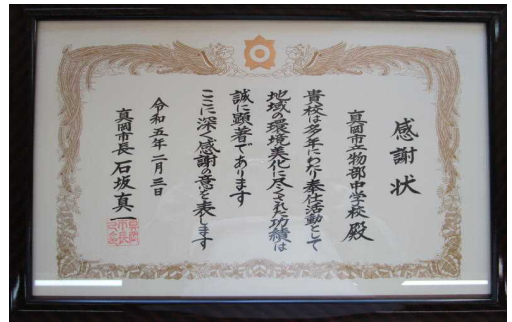 感謝状
真岡市立物部中学校殿
貴校は多年にわたり奉仕活動として
地域の環境美化に尽くされた功績は
誠に顕著であります
ここに深く感謝の意を表します
令和五年二月三日
真岡市長 石坂真一